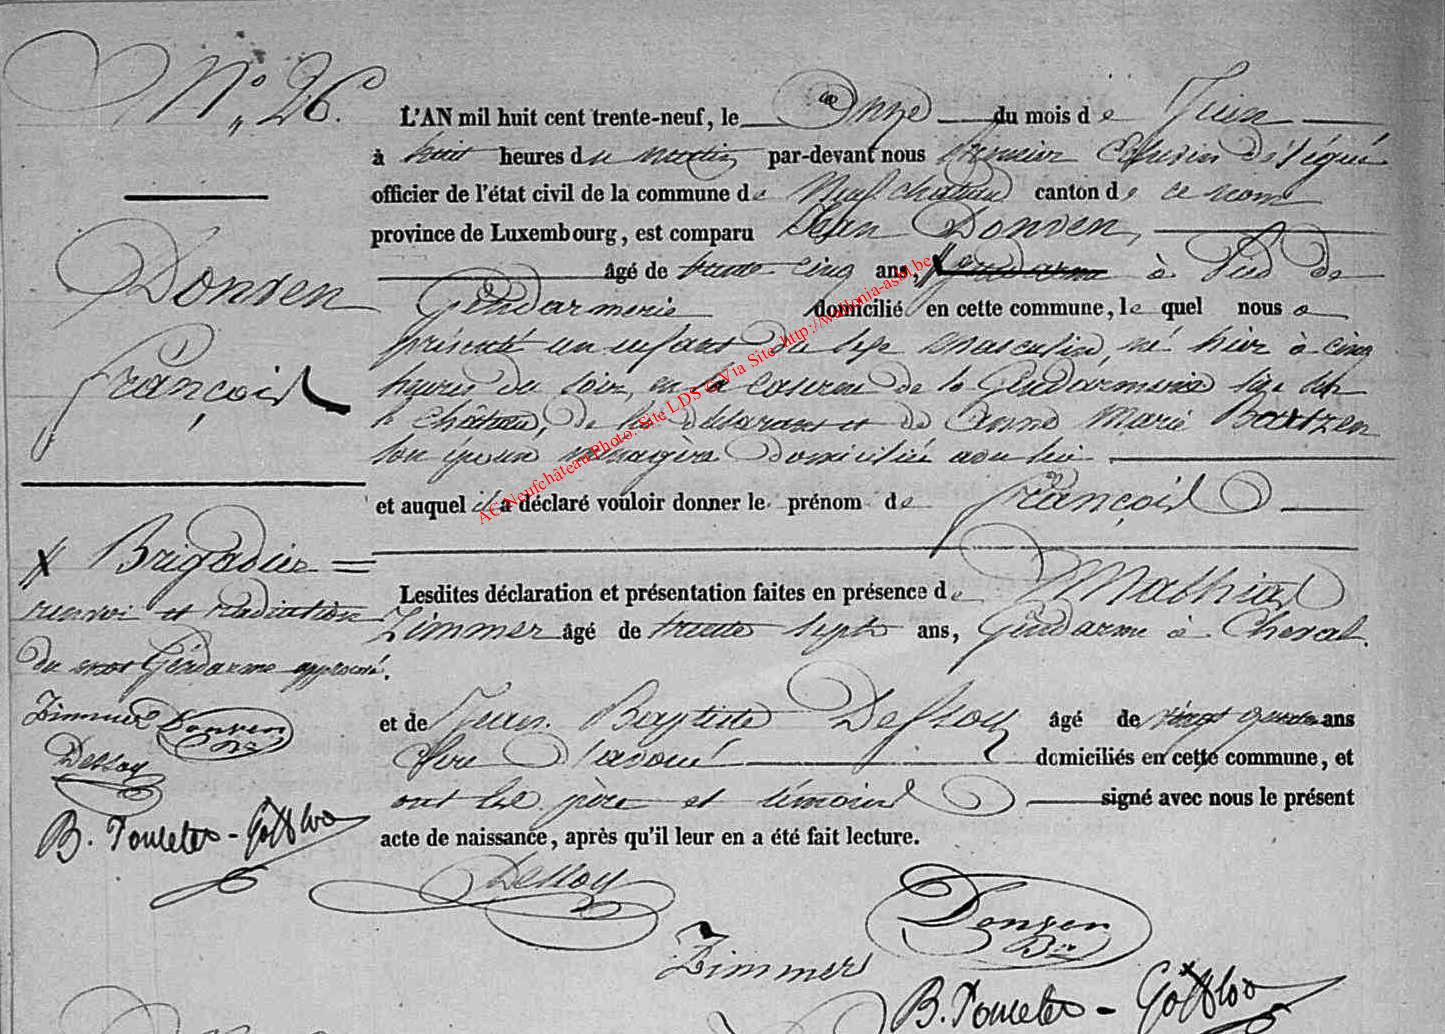 N° 26.
Donven
François
Brigadier =
renvoi et radiation
du mot Gendarme approuvé.
Zimmer Donven
Bier
Dessoy
B. Poncelet -
L'AN mil huit cent trente-neuf, le Onze du mois de Juin
à huit heures du matin par-devant nous premier Echevin délégué
officier de l'état civil de la commune de Neufchateau canton de ce nom
province de Luxembourg, est comparu Jean Donven,
âgé de trente cinq ans, Gendarme à Pied de
Gendarmerie domicilié en cette commune, lequel nous a
présenté un enfant du sexe masculin, né hier à cinq
heures du soir, en la caserne de la Gendarmerie
le Château, de lui déclarant et de Anne Marie Bartzen
son épouse ménagère domiciliée avec lui
et auquel il a déclaré vouloir donner le prénom de François
Lesdites déclaration et présentation faites en présence de Mathias
Zimmer âgé de trente sept ans, Gendarme à Cheval.
et de Jean Baptiste Dessoy âgé de vingt quatre ans
Clerc d'avoué domiciliés en cette commune, et
ont les père et témoins signé avec nous le présent
acte de naissance, après qu'il leur en a été fait lecture.
Dessoy
Donven
Bier
Zimmer
B. Poncelet -
AC Neufchâteau Photo. Site LDS © Via Site http://wallonia-asbl.be